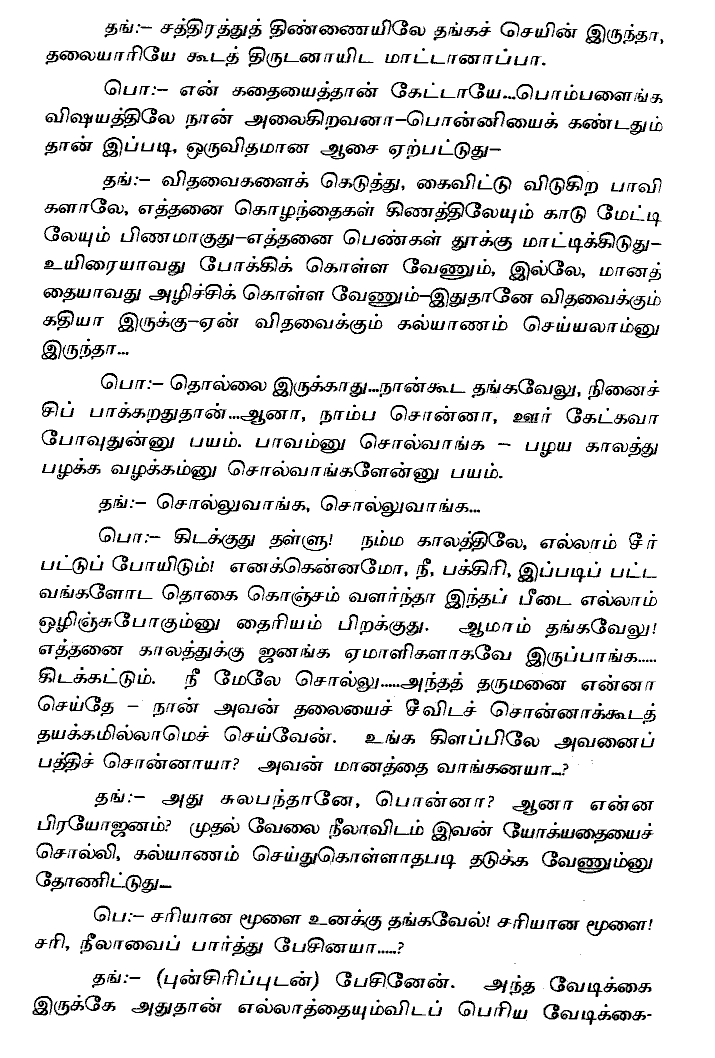 தங்:– சத்திரத்துத் திண்ணையிலே தங்கச் செயின் இருந்தா,
தலையாரியே கூடத் திருடனாயிட மாட்டானாப்பா.
பொ:– என் கதையைத்தான் கேட்டாயே...பொம்பளைங்க
விஷயத்திலே நான் அலைகிறவனா–பொன்னியைக் கண்டதும்
தான் இப்படி, ஒருவிதமான ஆசை ஏற்பட்டுது–
தங்:– விதவைகளைக் கெடுத்து, கைவிட்டு விடுகிற பாவி
களாலே, எத்தனை கொழந்தைகள் கிணத்திலேயும் காடு மேட்டி
லேயும் பிணமாகுது–எத்தனை பெண்கள் தூக்கு மாட்டிக்கிடுது–
உயிரையாவது போக்கிக் கொள்ள வேணும், இல்லே, மானத்
தையாவது அழிச்சிக் கொள்ள வேணும்–இதுதானே விதவைக்கும்
கதியா இருக்கு–ஏன் விதவைக்கும் கல்யாணம் செய்யலாம்னு
இருந்தா...
பொ:– தொல்லை இருக்காது...நான்கூட தங்கவேலு, நினைச்
சிப் பாக்கறதுதான்...ஆனா, நாம்ப சொன்னா, ஊர் கேட்கவா
போவுதுன்னு பயம். பாவம்னு சொல்வாங்க – பழய காலத்து
பழக்க வழக்கம்னு சொல்வாங்களேன்னு பயம்.
தங்:– சொல்லுவாங்க, சொல்லுவாங்க...
பொ:– கிடக்குது தள்ளு! நம்ம காலத்திலே, எல்லாம் சீர்
பட்டுப் போயிடும்! எனக்கென்னமோ, நீ, பக்கிரி, இப்படிப் பட்ட
வங்களோட தொகை கொஞ்சம் வளர்ந்தா இந்தப் பீடை எல்லாம்
ஒழிஞ்சுபோகும்னு தைரியம் பிறக்குது. ஆமாம் தங்கவேலு!
எத்தனை காலத்துக்கு ஜனங்க ஏமாளிகளாகவே இருப்பாங்க.....
கிடக்கட்டும். நீ மேலே சொல்லு.....அந்தத் தருமனை என்னா
செய்தே – நான் அவன் தலையைச் சீவிடச் சொன்னாக்கூடத்
தயக்கமில்லாமெச் செய்வேன். உங்க கிளப்பிலே அவனைப்
பத்திச் சொன்னாயா? அவன் மானத்தை வாங்கனயா...?
தங்:– அது சுலபந்தானே, பொன்னா? ஆனா என்ன
பிரயோஜனம்? முதல் வேலை நீலாவிடம் இவன் யோக்யதையைச்
சொல்லி, கல்யாணம் செய்துகொள்ளாதபடி தடுக்க வேணும்னு
தோணிட்டுது...
பெ:– சரியான மூளை உனக்கு தங்கவேல்! சரியான மூளை!
சரி, நீலாவைப் பார்த்து பேசினயா.....?
தங்:– (புன்சிரிப்புடன்) பேசினேன். அந்த வேடிக்கை
இருக்கே அதுதான் எல்லாத்தையும்விடப் பெரிய வேடிக்கை-